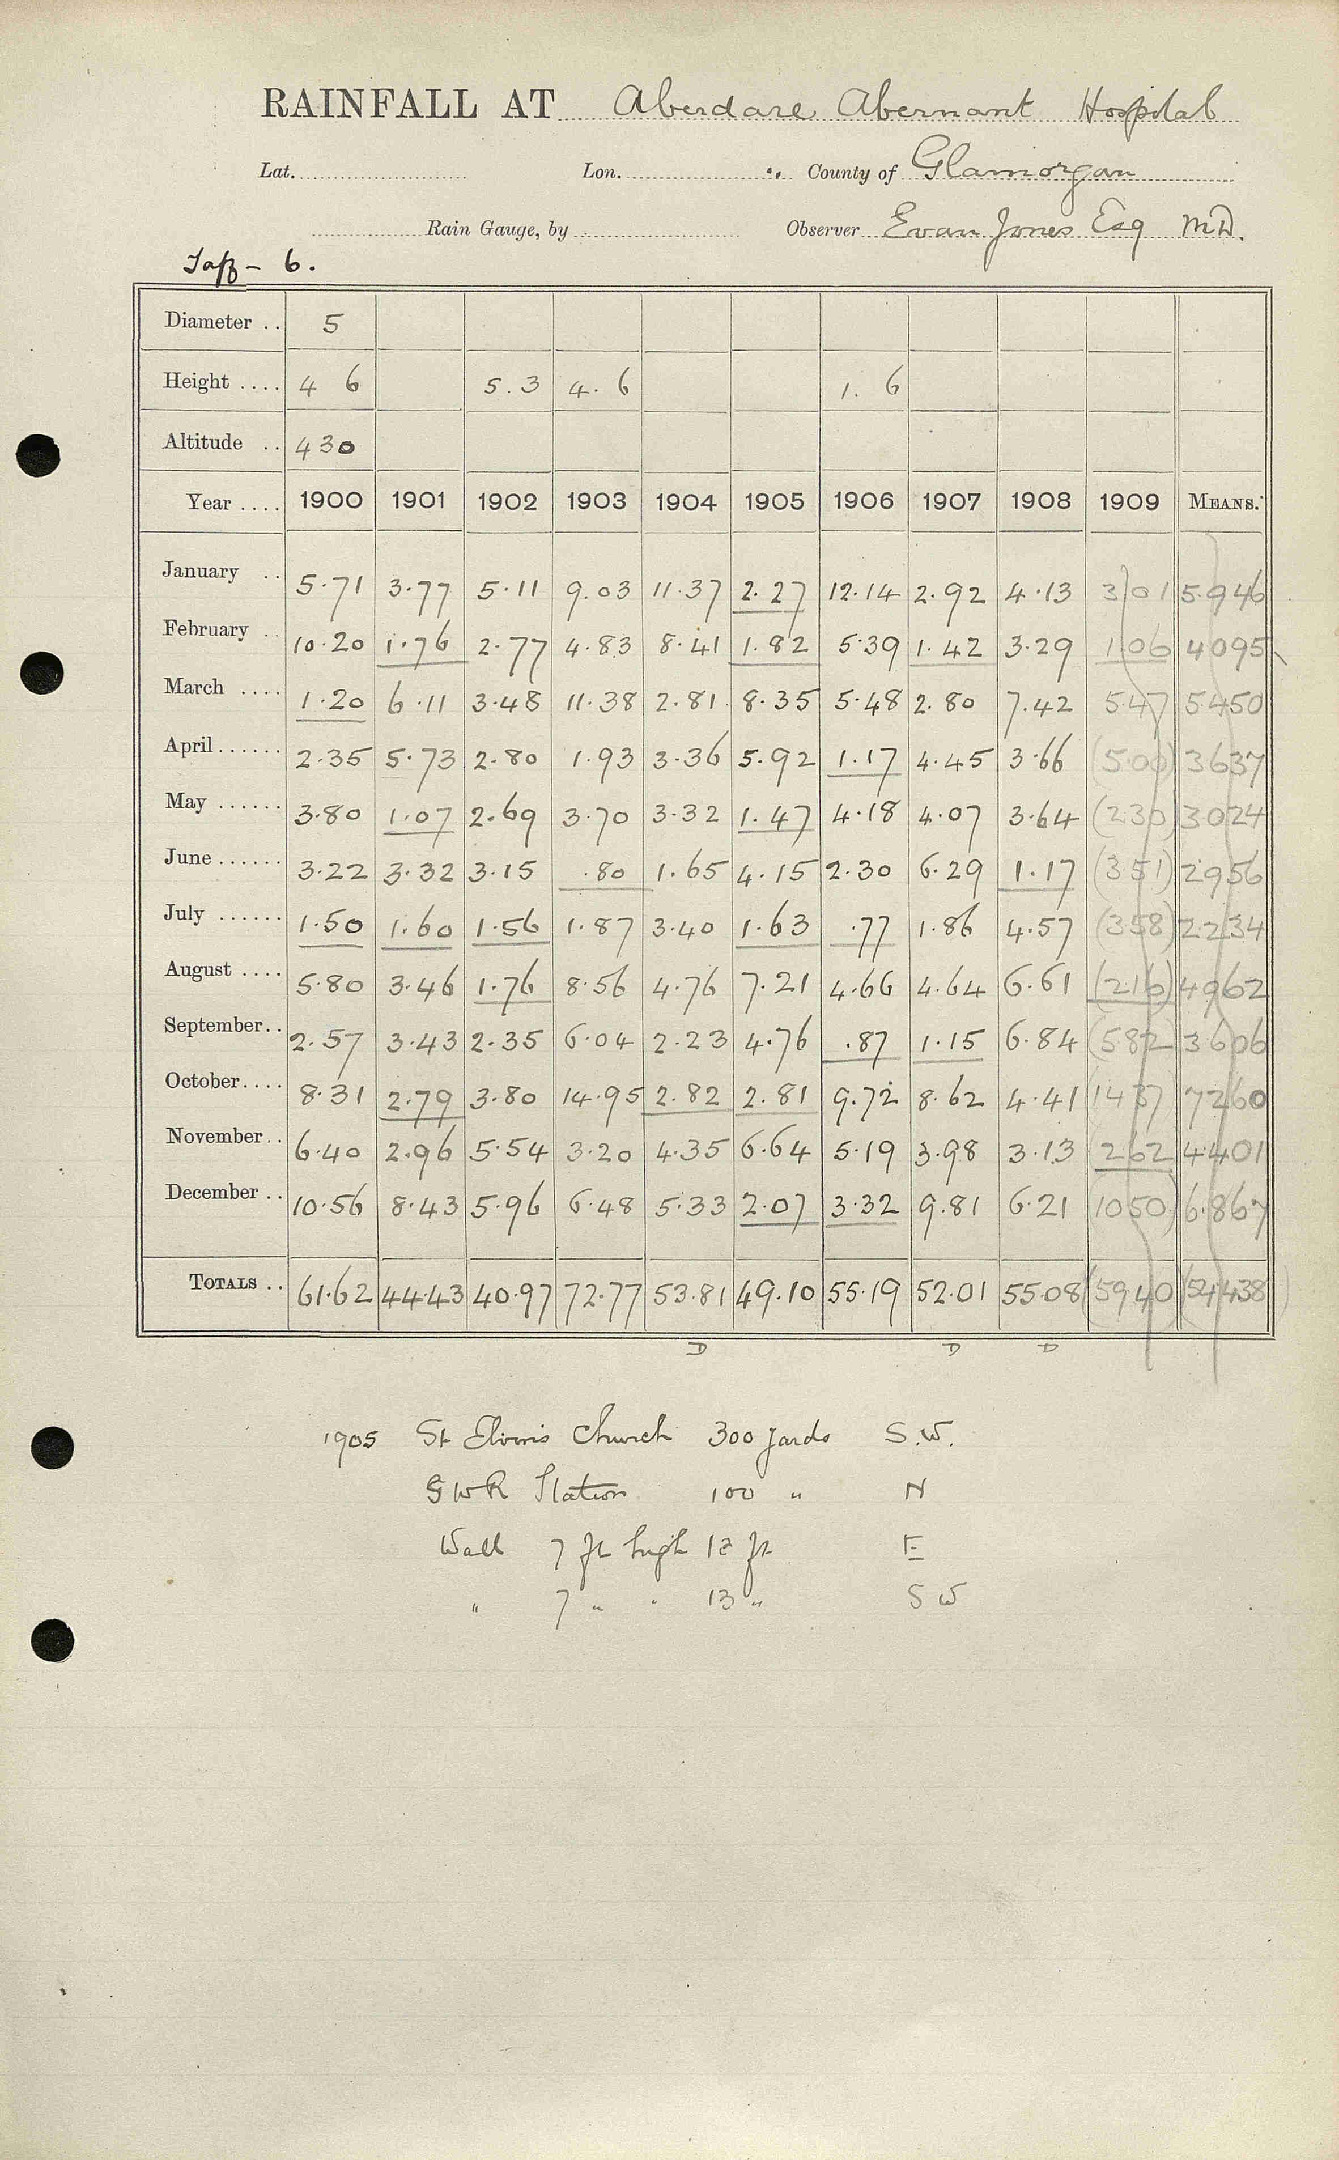 RAINFALL AT Aberdare Abernant Hospital
Lat. Lon. County of Glamorgan
Rain Gauge, by Observer Evan Jones Esq M.D.
Taff - 6.
Diameter .. 5
Height .... 4 6 5.3 4.6 1.6
Altitude .. 430
Year .... 1900 1901 1902 1903 1904 1905 1906 1907 1908 1909 MEANS.
January .. 5.71 3.77 5.11 9.03 11.37 2.27 12.14 2.92 4.13 3 01 5.946
February .. 10.20 1.76 2.77 4.83 8.41 1.82 5.39 1.42 3.29 1 06 4 095
March .... 1.20 6.11 3.48 11.38 2.81 8.35 5.48 2.80 7.42 5 47 5 450
April ...... 2.35 5.73 2.80 1.93 3.36 5.92 1.17 4.45 3.66 (5.00) 3 637
May ...... 3.80 1.07 2.69 3.70 3.32 1.47 4.18 4.07 3.64 (2 30) 3 024
June ...... 3.22 3.32 3.15 .80 1.65 4.15 2.30 6.29 1.17 (3 51) 2 956
July ...... 1.50 1.60 1.56 1.87 3.40 1.63 .77 1.86 4.57 (3 58) 2 234
August .... 5.80 3.46 1.76 8.56 4.76 7.21 4.66 4.64 6.61 (2 16) 4 962
September.. 2.57 3.43 2.35 6.04 2.23 4.76 .87 1.15 6.84 (5 82) 3 606
October.... 8.31 2.79 3.80 14.95 2.82 2.81 9.72 8.62 4.41 (14 37) 7 260
November.. 6.40 2.96 5.54 3.20 4.35 6.64 5.19 3.98 3.13 (2 62) 4 401
December .. 10.56 8.43 5.96 6.48 5.33 2.07 3.32 9.81 6.21 (10 50) 6.867
TOTALS .. 61.62 44.43 40.97 72.77 53.81 49.10 55.19 52.01 55.08 (59 40) (54 438)
D D D
1905 St Elvins Church 300 yards S.W.
G W R Station 100 " N
Wall 7 ft high 12 ft E
" 7 " " 13 " S W